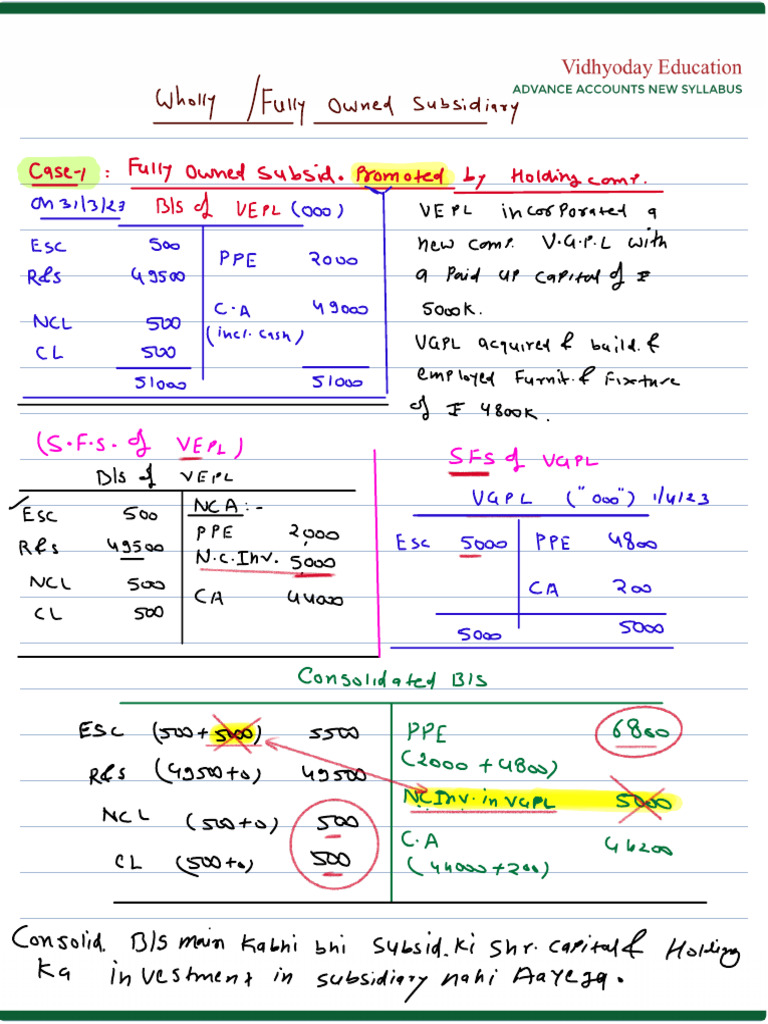 Vidhyoday Education
ADVANCE ACCOUNTS NEW SYLLABUS
Wholly / Fully Owned Subsidiary
Case-1 : Fully Owned Subsid. Promoted by Holding comp.
On 31/3/23 B/s of VEPL (000)
ESC 500 PPE 2000
R&S 49500
NCL 500 C.A 49000
CL 500 (incl. cash)
51000 51000
VEPL incorporated a
new comp. V.G.P.L with
a Paid up capital of ₹
5000K.
VGPL acquired & build. &
employed Furnit. & Fixture
of ₹ 4800K.
(S.F.S. of VEPL)
B/s of VEPL
ESC 500 NCA :-
R&S 49500 PPE 2000
N.C. Inv. 5000
NCL 500 CA 44000
CL 500
SFS of VGPL
VGPL ("000") 1/4/23
ESC 5000 PPE 4800
CA 200
5000 5000
Consolidated B/S
ESC (500+5000) 5500 PPE 6800
(2000 + 4800)
R&S (49500+0) 49500
NC Inv. in VGPL 5000
NCL (500+0) 500
C.A 44200
CL (500+0) 500 (44000+200)
Consolid. B/s main Kabhi bhi Subsid. ki Shr. capital & Holding
Ka investment in subsidiary nahi Aayega.